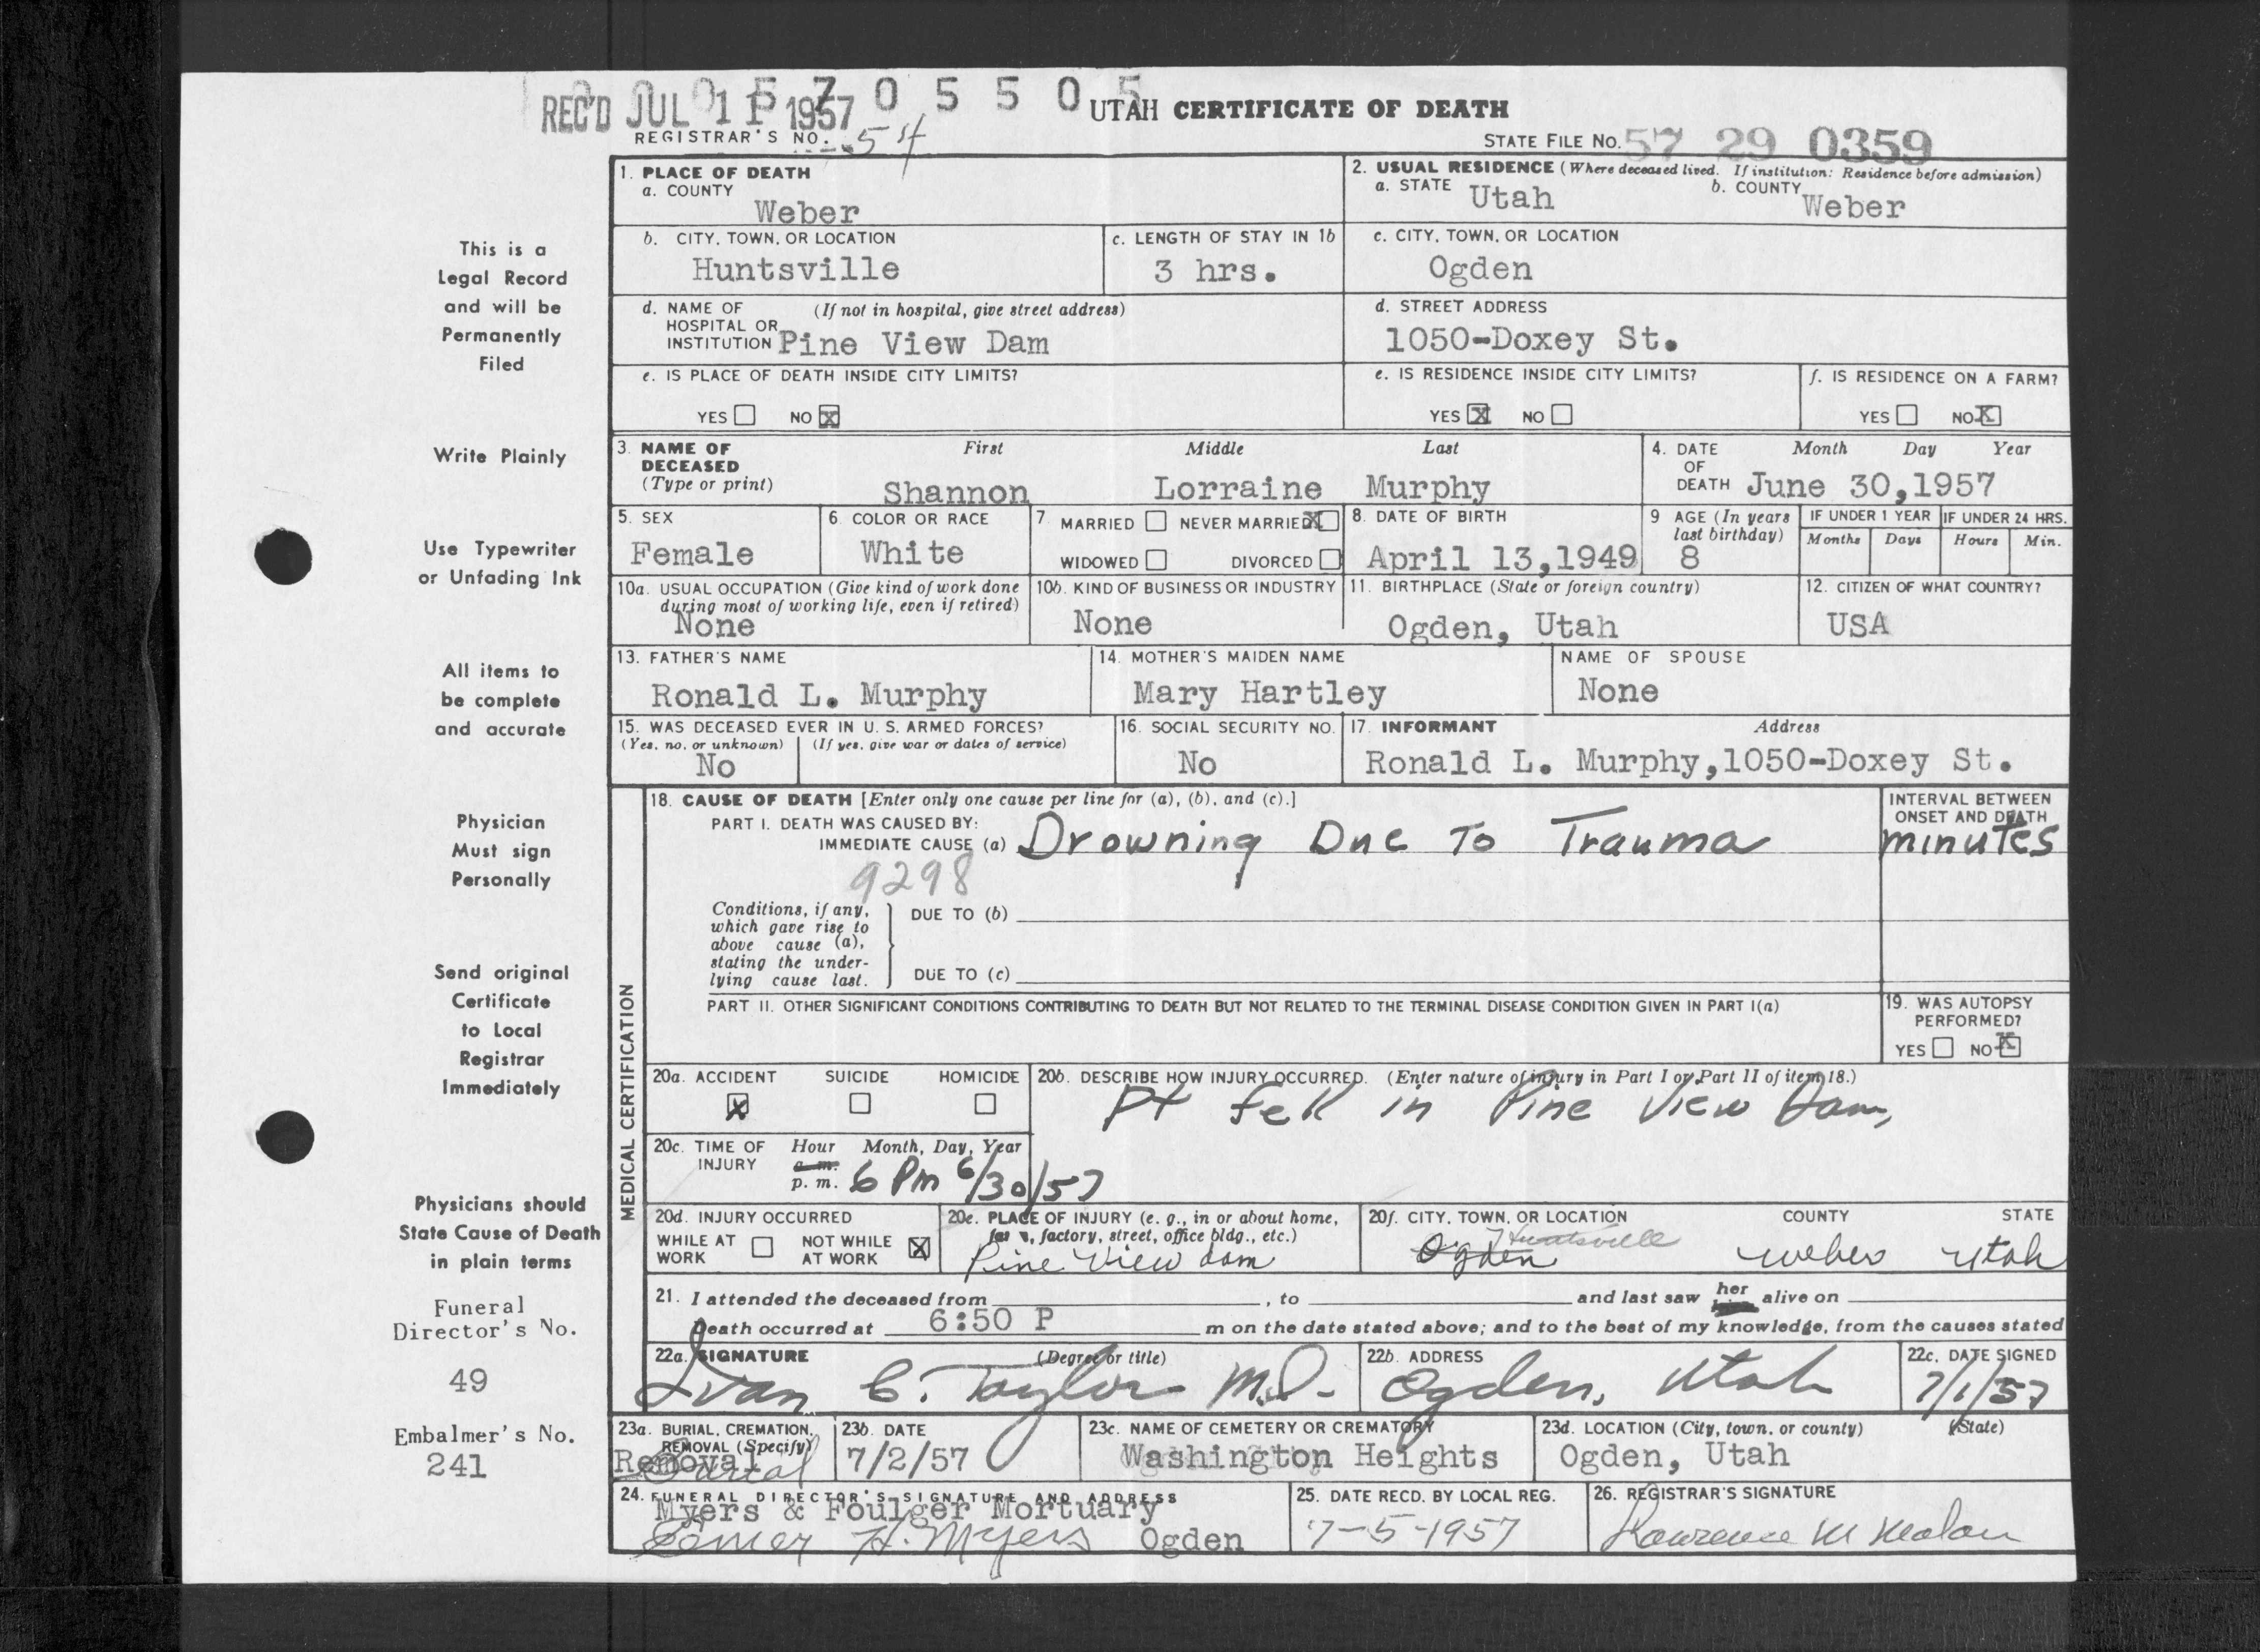 REC'D JUL 11 1957
UTAH CERTIFICATE OF DEATH
REGISTRAR'S NO. 54
STATE FILE NO. 57 29 0359
1. PLACE OF DEATH
a. COUNTY
Weber
2. USUAL RESIDENCE (Where deceased lived. If institution: Residence before admission)
a. STATE Utah b. COUNTY Weber
b. CITY, TOWN, OR LOCATION
Huntsville
c. LENGTH OF STAY IN 1b
3 hrs.
c. CITY, TOWN, OR LOCATION
Ogden
d. NAME OF HOSPITAL OR INSTITUTION (If not in hospital, give street address)
Pine View Dam
d. STREET ADDRESS
1050-Doxey St.
e. IS PLACE OF DEATH INSIDE CITY LIMITS?
YES NO X
e. IS RESIDENCE INSIDE CITY LIMITS?
YES X NO
f. IS RESIDENCE ON A FARM?
YES NO X
3. NAME OF DECEASED (Type or print)
First Middle Last
Shannon Lorraine Murphy
4. DATE OF DEATH Month Day Year
June 30,1957
5. SEX
Female
6. COLOR OR RACE
White
7. MARRIED NEVER MARRIED X
WIDOWED DIVORCED
8. DATE OF BIRTH
April 13,1949
9 AGE (In years last birthday)
8
IF UNDER 1 YEAR
Months Days
IF UNDER 24 HRS.
Hours Min.
10a. USUAL OCCUPATION (Give kind of work done during most of working life, even if retired)
None
10b. KIND OF BUSINESS OR INDUSTRY
None
11. BIRTHPLACE (State or foreign country)
Ogden, Utah
12. CITIZEN OF WHAT COUNTRY?
USA
13. FATHER'S NAME
Ronald L. Murphy
14. MOTHER'S MAIDEN NAME
Mary Hartley
NAME OF SPOUSE
None
15. WAS DECEASED EVER IN U. S. ARMED FORCES?
(Yes, no, or unknown) (If yes, give war or dates of service)
No
16. SOCIAL SECURITY NO.
No
17. INFORMANT Address
Ronald L. Murphy,1050-Doxey St.
MEDICAL CERTIFICATION
18. CAUSE OF DEATH [Enter only one cause per line for (a), (b), and (c).]
PART I. DEATH WAS CAUSED BY:
IMMEDIATE CAUSE (a) Drowning Due To Trauma
INTERVAL BETWEEN ONSET AND DEATH
minutes
9298
Conditions, if any, which gave rise to above cause (a), stating the underlying cause last.
DUE TO (b)
DUE TO (c)
PART II. OTHER SIGNIFICANT CONDITIONS CONTRIBUTING TO DEATH BUT NOT RELATED TO THE TERMINAL DISEASE CONDITION GIVEN IN PART I(a)
19. WAS AUTOPSY PERFORMED?
YES NO X
20a. ACCIDENT SUICIDE HOMICIDE
X
20b. DESCRIBE HOW INJURY OCCURRED. (Enter nature of injury in Part I or Part II of item 18.)
Pt fell in Pine View Dam,
20c. TIME OF INJURY Hour Month, Day, Year
a. m.
p. m. 6 Pm 6/30/57
20d. INJURY OCCURRED
WHILE AT WORK NOT WHILE AT WORK X
20e. PLACE OF INJURY (e. g., in or about home, farm, factory, street, office bldg., etc.)
Pine View dam
20f. CITY, TOWN, OR LOCATION COUNTY STATE
Huntsville
Ogden Weber Utah
21. I attended the deceased from , to and last saw her him alive on
Death occurred at 6:50 P m on the date stated above; and to the best of my knowledge, from the causes stated
22a. SIGNATURE (Degree or title)
Ivan C. Taylor M.D.
22b. ADDRESS
Ogden, Utah
22c. DATE SIGNED
7/1/57
23a. BURIAL, CREMATION, REMOVAL (Specify)
Removal
Burial
23b. DATE
7/2/57
23c. NAME OF CEMETERY OR CREMATORY
Washington Heights
23d. LOCATION (City, town, or county) (State)
Ogden, Utah
24. FUNERAL DIRECTOR'S SIGNATURE AND ADDRESS
Myers & Foulger Mortuary
H. Myers Ogden
25. DATE RECD. BY LOCAL REG.
7-5-1957
26. REGISTRAR'S SIGNATURE
Lawrence M Malan
This is a
Legal Record
and will be
Permanently
Filed
Write Plainly
Use Typewriter
or Unfading Ink
All items to
be complete
and accurate
Physician
Must sign
Personally
Send original
Certificate
to Local
Registrar
Immediately
Physicians should
State Cause of Death
in plain terms
Funeral
Director's No.
49
Embalmer's No.
241